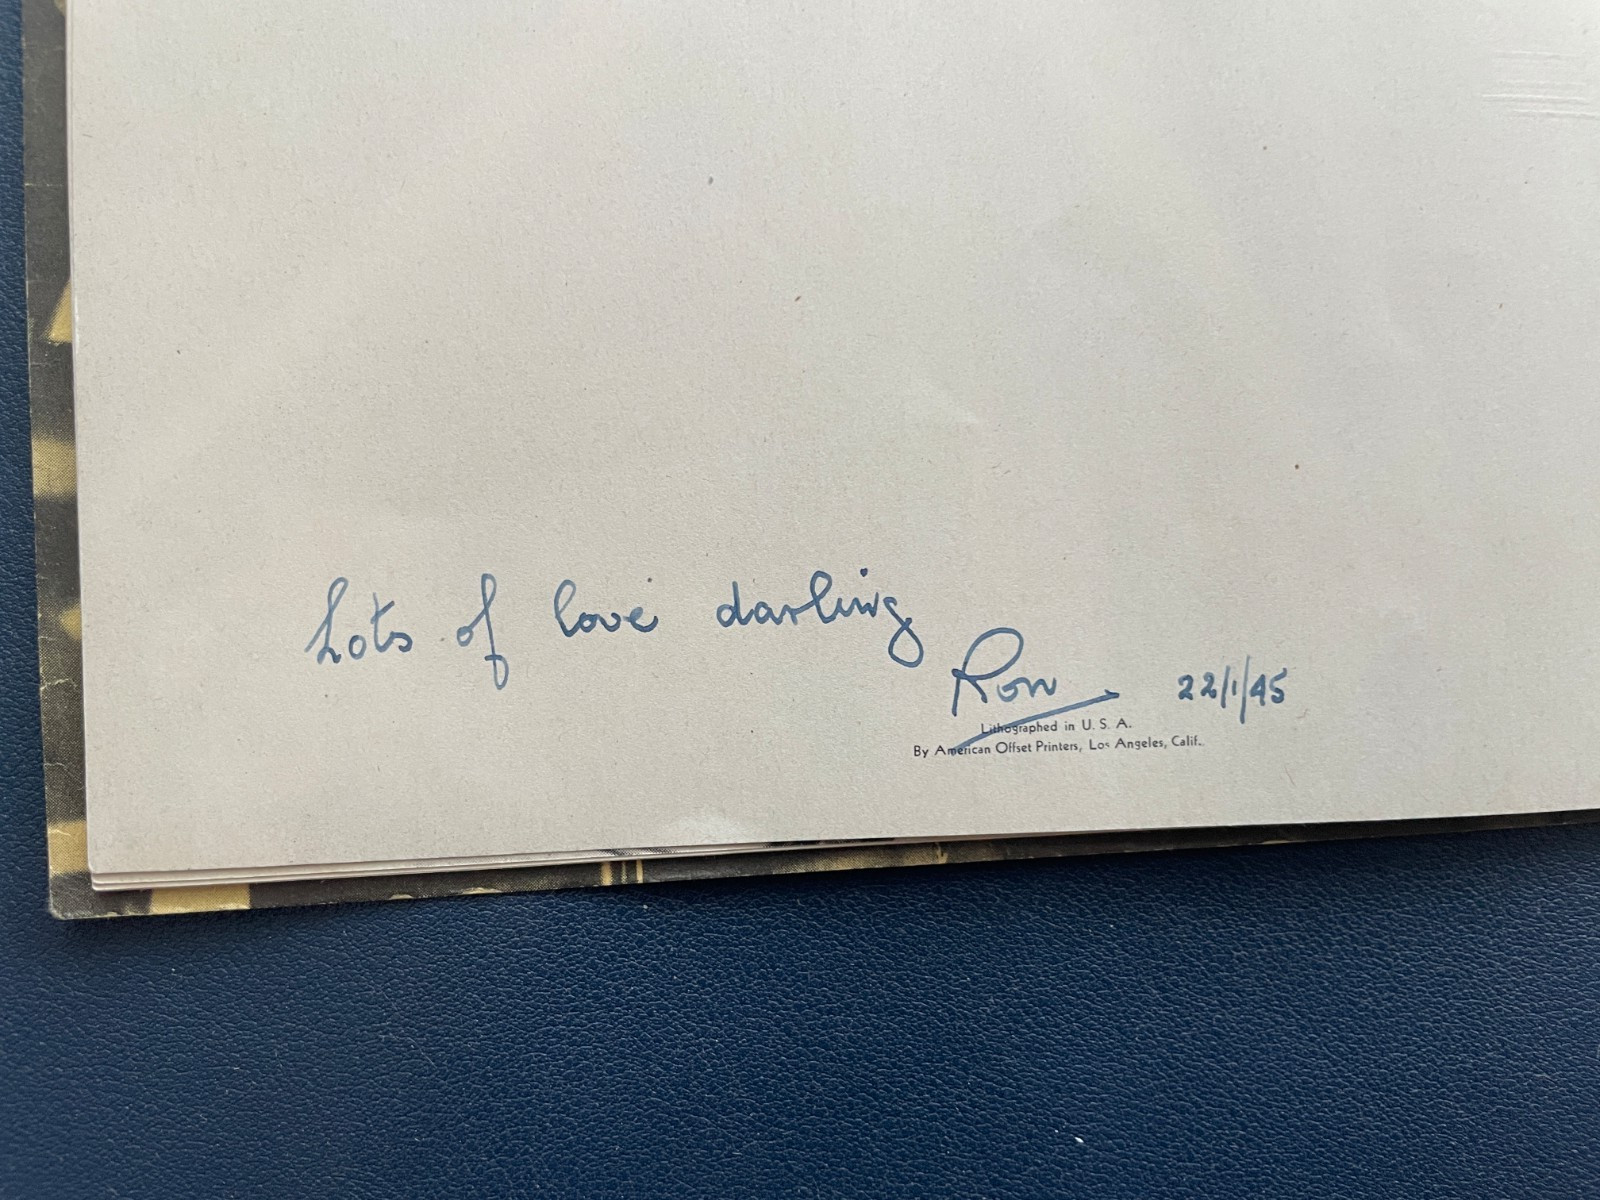 Lots of love darling
Ron 22/1/45
Lithographed in U. S. A.
By American Offset Printers, Los Angeles, Calif.